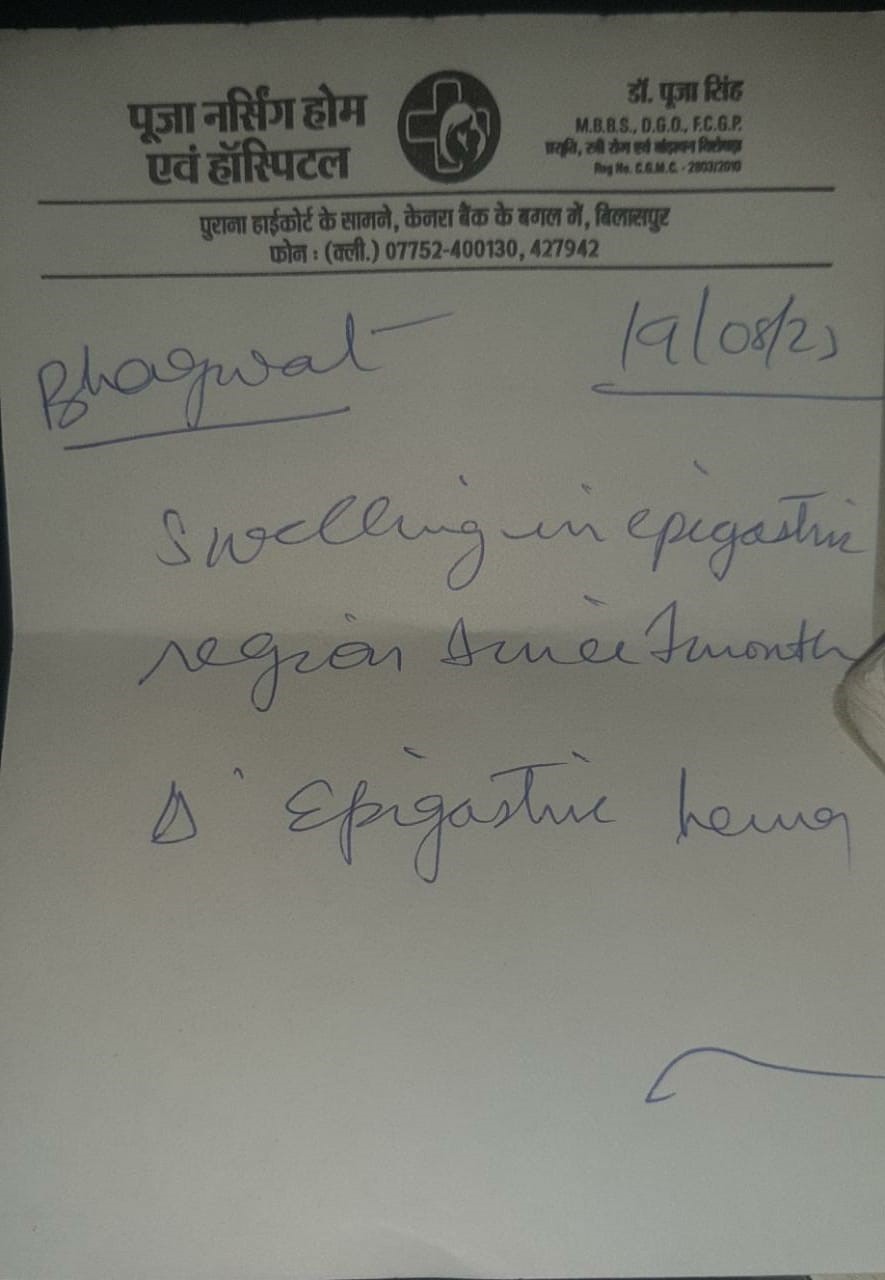 पूजा नर्सिंग होम
एवं हॉस्पिटल
डॉ. पूजा सिंह
M.B.B.S., D.G.O., F.C.G.P.
प्रसूति, स्त्री रोग एवं बांझपन विशेषज्ञ
Reg No. C.G.M.C. - 2803/2010
पुराना हाईकोर्ट के सामने, केनरा बैंक के बगल में, बिलासपुर
फोन : (क्ली.) 07752-400130, 427942
Bhagwat
19/08/23
Swelling in epigastric
region since 7 month
Δ Epigastric